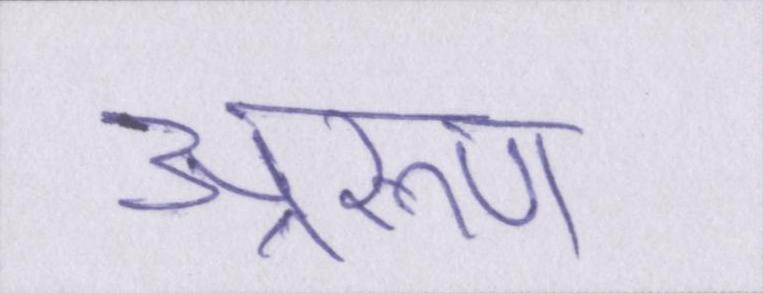 अरूण